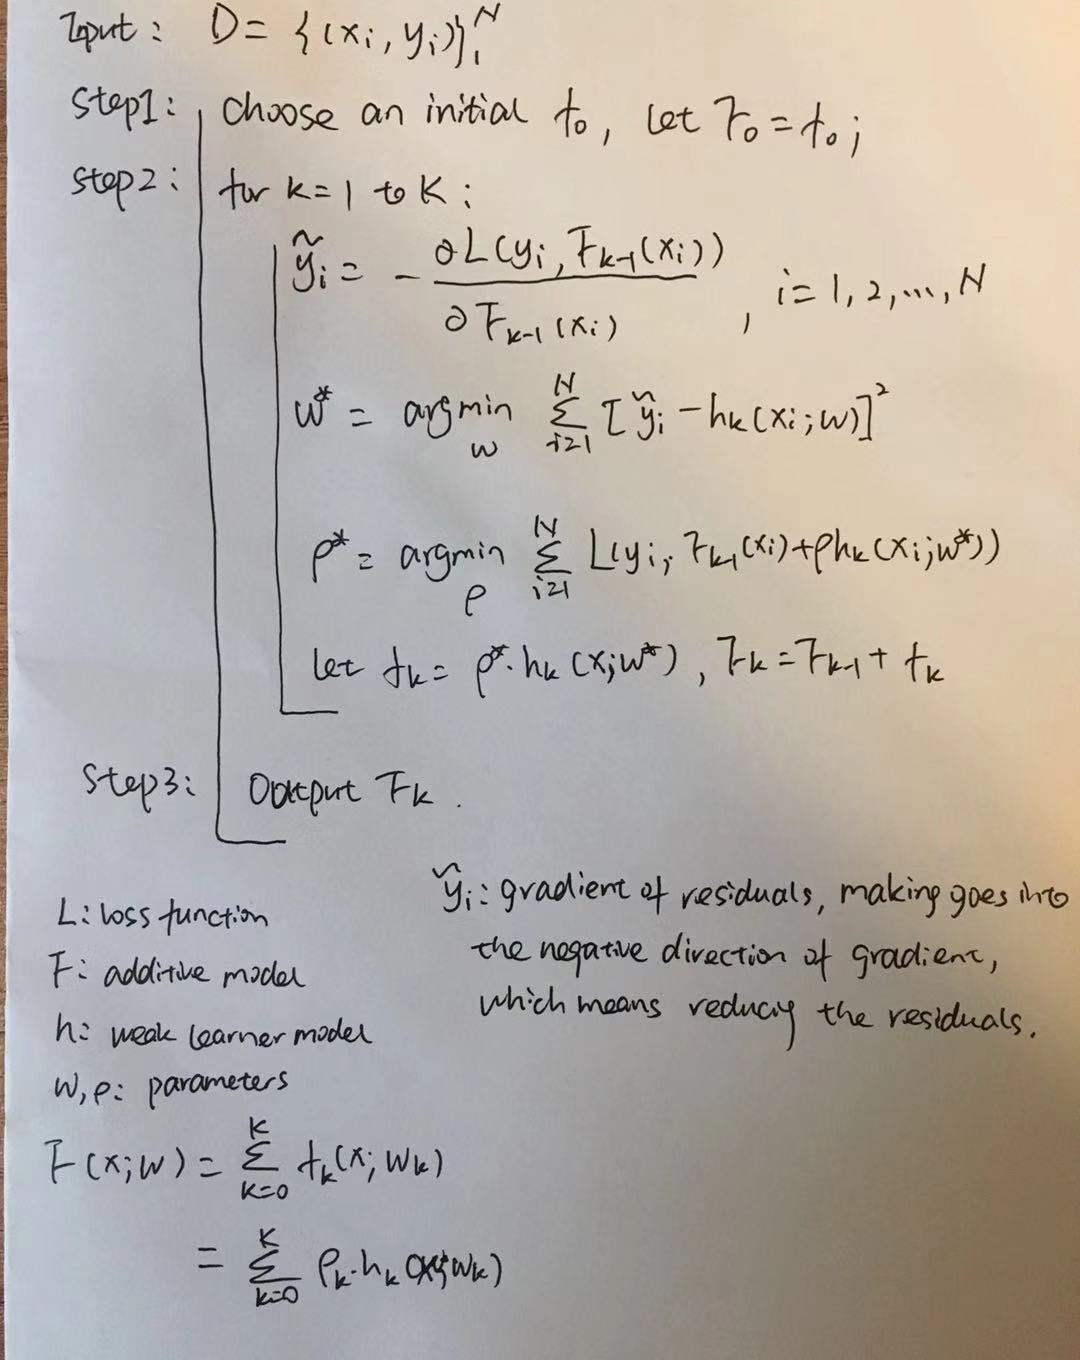 Input: D = {(xi, yi)}₁ᴺ
Step1: choose an initial f₀, let F₀ = f₀;
Step2: for k=1 to K:
ỹi = - ∂L(yi, Fk-1(xi)) / ∂Fk-1(xi), i=1,2,...,N
w* = argmin_w Σ_{i=1}^N [ỹi - hk(xi;w)]²
ρ* = argmin_ρ Σ_{i=1}^N L(yi, Fk-1(xi)+ρhk(xi;w*))
let fk = ρ*·hk(x;w*), Fk = Fk-1 + fk
Step3: Output Fk.
L: loss function
F: additive model
h: weak learner model
w,ρ: parameters
ỹi: gradient of residuals, making goes into
the negative direction of gradient,
which means reducing the residuals.
F(x;w) = Σ_{k=0}^K fk(x;wk)
= Σ_{k=0}^K ρk·hk(x;wk)